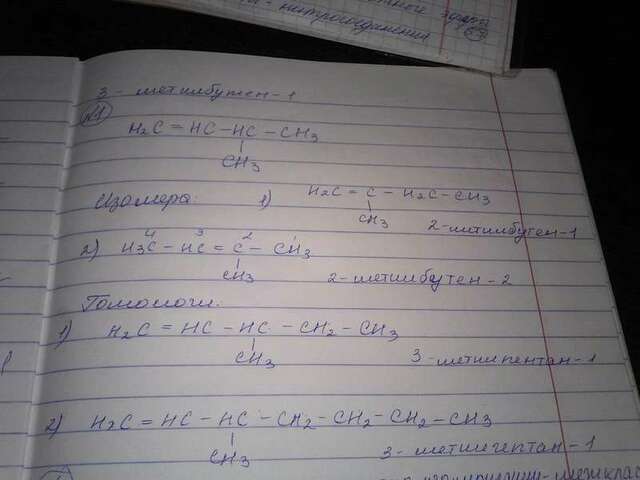 нитросоединения
3 - метилбутен-1
№1
H2C = HC - HC - CH3
CH3
Изомера: 1) H2C = C - H2C - CH3
CH3
2-метилбутен-1
4 3 2 1
2) H3C - HC = C - CH3
CH3
2-метилбутен-2
Гомологи:
1) H2C = HC - HC - CH2 - CH3
CH3
3-метилпентан-1
2) H2C = HC - HC - CH2 - CH2 - CH2 - CH3
CH3
3-метилгептан-1